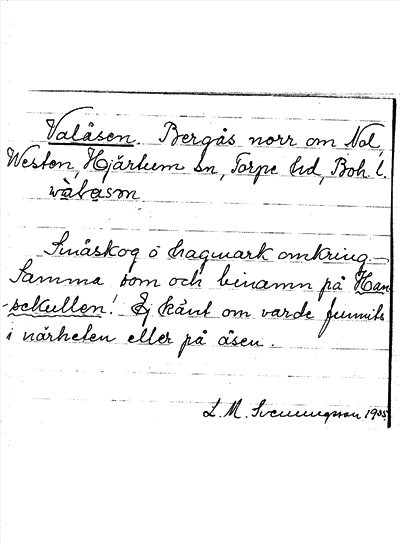 Valåsen. Bergås norr om Nol,
Weston, Hjärtum sn, Torpe hd, Boh l.
wàlåsøn
Småskog o hagmark omkring.—
Samma som och binamn på Han-
-sekullen! Ej känt om varde funnits
i närheten eller på åsen.
L. M. Svenungsson 1935.